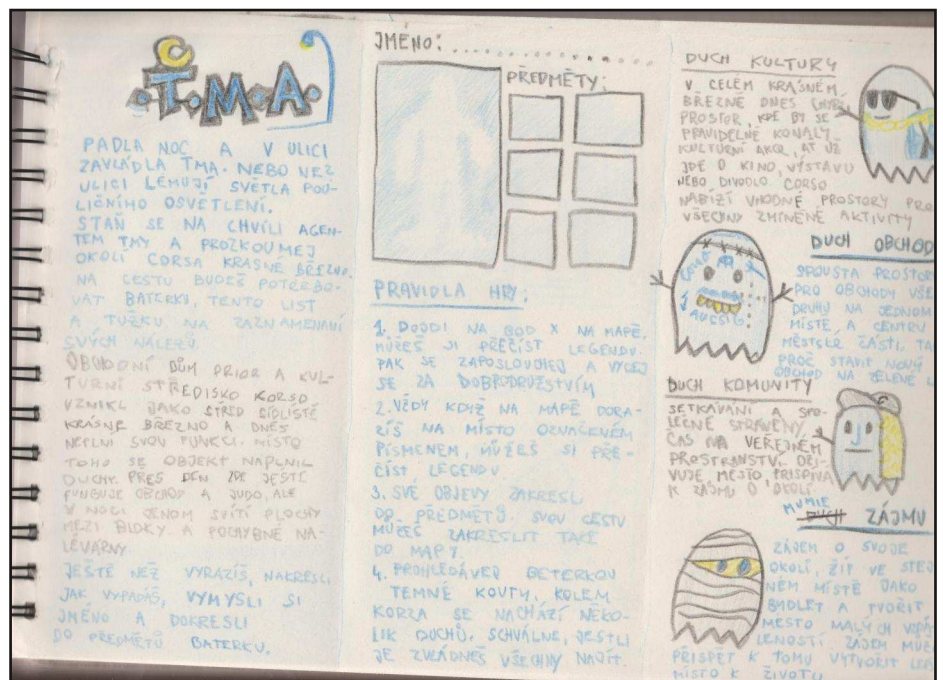 .T.M.A.
PADLA NOC A V ULICI
ZAVLÁDLA TMA. NEBO NE?
ULICI LEMUJÍ SVĚTLA POU-
LIČNÍHO OSVĚTLENÍ.
STAŇ SE NA CHVÍLI AGEN-
TEM TMY A PROZKOUMEJ
OKOLÍ CORSA KRÁSNÉ BŘEZNO.
NA CESTU BUDEŠ POTŘEBO-
VAT BATERKU, TENTO LIST
A TUŽKU NA ZAZNAMENÁNÍ
SVÝCH NÁLEZŮ.
OBCHODNÍ DŮM PRIOR A KUL-
TURNÍ STŘEDISKO KORSO
VZNIKL JAKO STŘED SÍDLIŠTĚ
KRÁSNÉ BŘEZNO A DNES
NEPLNÍ SVOU FUNKCI. MÍSTO
TOHO SE OBJEKT NAPLNIL
DUCHY. PŘES DEN ZDE JEŠTĚ
FUNGUJE OBCHOD A JUDO, ALE
V NOCI JENOM SVÍTÍ PLOCHY
MEZI BLOKY A POCHYBNÉ NA-
LÉVÁRNY
JEŠTĚ NEŽ VYRAZÍŠ, NAKRESLI
JAK VYPADÁŠ, VYMYSLI SI
JMÉNO A DOKRESLI
DO PŘEDMĚTŮ BATERKU.
JMÉNO:
PŘEDMĚTY:
PRAVIDLA HRY:
1. DOJDI NA BOD X NA MAPĚ.
MŮŽEŠ SI PŘEČÍST LEGENDU.
PAK SE ZAPOSLOUCHEJ A VYDEJ
SE ZA DOBRODRUŽSTVÍM
2. VŽDY KDYŽ NA MAPĚ DORA-
ZÍŠ NA MÍSTO OZNAČENÉM
PÍSMENEM, MŮŽEŠ SI PŘE-
ČÍST LEGENDU
3. SVÉ OBJEVY ZAKRESLI
DO PŘEDMĚTŮ. SVOU CESTU
MŮŽEŠ ZAKRESLIT TAKÉ
DO MAPY.
4. PROHLEDÁVEJ BETERKOU
TEMNÉ KOUTY, KOLEM
KORZA SE NACHÁZÍ NĚKO-
LIK DUCHŮ. SCHVÁLNĚ, JESTLI
JE ZVLÁDNEŠ VŠECHNY NAJÍT.
DUCH KULTURY
V CELÉM KRÁSNÉM
BŘEZNĚ DNES CHYBÍ
PROSTOR, KDE BY SE
PRAVIDELNĚ KONALY
KULTURNÍ AKCE, AŤ UŽ
JDE O KINO, VÝSTAVU
NEBO DIVADLO. CORSO
NABÍZÍ VHODNÉ PROSTORY PRO
VŠECHNY ZMÍNĚNÉ AKTIVITY
DUCH OBCHOD
SPOUSTA PROSTOR
PRO OBCHODY VŠE
DRUHU NA JEDNOM
MÍSTĚ A CENTRU
MĚSTSKÉ ČÁSTI, TA
PROČ STAVIT NOVÝ
OBCHOD NA ZELENÉ L
DUCH KOMUNITY
SETKÁVÁNÍ A SPO-
LEČNĚ STRÁVENÝ
ČAS NA VEŘEJNÉM
PROSTRANSTVÍ, OŽI-
VUJE MĚSTO, PŘISPÍVÁ
K ZÁJMU O OKOLÍ.
MUMIE
DUCH ZÁJMU
ZÁJEM O SVOJE
OKOLÍ, ŽÍT VE STEJ
NÉM MÍSTĚ JAKO
BYDLET A TVOŘIT
MĚSTO MALÝCH VZDÁ
LENOSTÍ. ZÁJEM MŮŽ
PŘISPĚT K TOMU VYTVOŘIT LEP
MÍSTO K ŽIVOTU